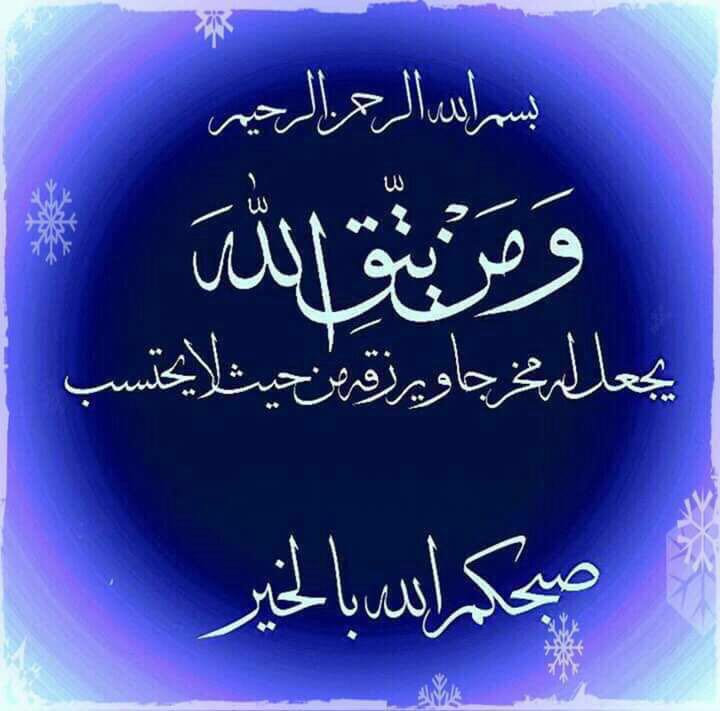 بسم الله الرحمن الرحيم
وَمَنْ يَتَّقِ اللَّهَ
يجعل له مخرجا ويرزقه من حيث لا يحتسب
صبحكم الله بالخير